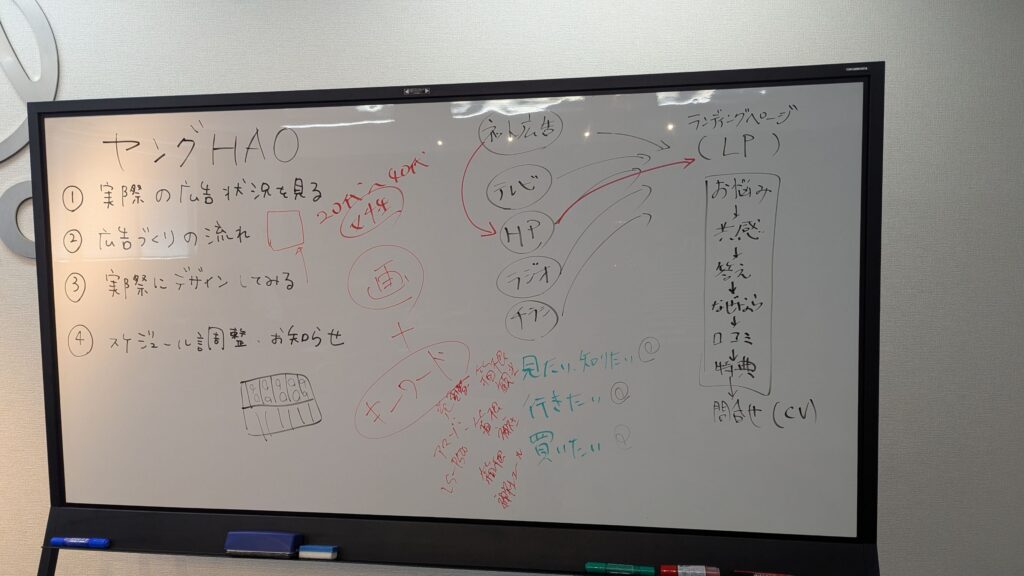 ヤングHAO
① 実際の広告状況を見る
② 広告づくりの流れ
③ 実際にデザインしてみる
④ スケジュール調整・お知らせ
20代〜40代
女性
画
+
キーワード
ネット広告
テレビ
HP
ラジオ
チラシ
見たい、知りたい
行きたい
買いたい
ランディングページ
(LP)
お悩み
↓
共感
↓
答え
↓
なぜなら
↓
口コミ
↓
特典
↓
問合せ(CV)